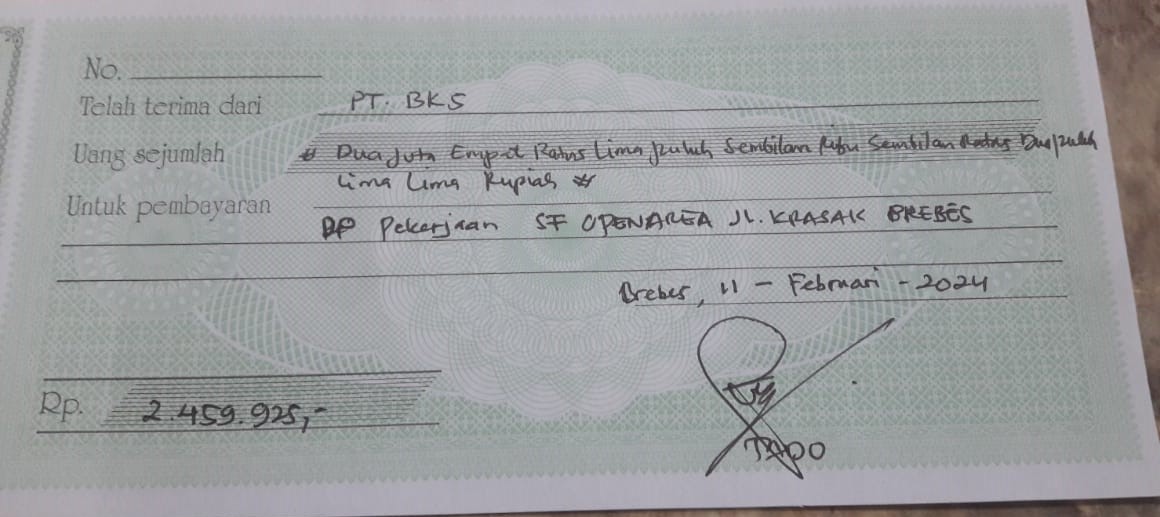 No.
Telah terima dari PT. BKS
Uang sejumlah # Dua Juta Empat Ratus Lima puluh Sembilan Ribu Sembilan Ratus Dua puluh
Lima Lima Rupiah #
Untuk pembayaran DP Pekerjaan SF OPENAREA JL. KRASAK BREBES
Brebes, 11 - Februari - 2024
Rp. 2.459.925,-